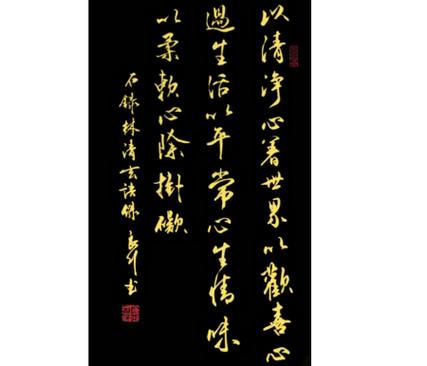 以清净心看世界以歡喜心
過生活以平常心生情味
以柔軟心除掛礙
石錄林清玄語